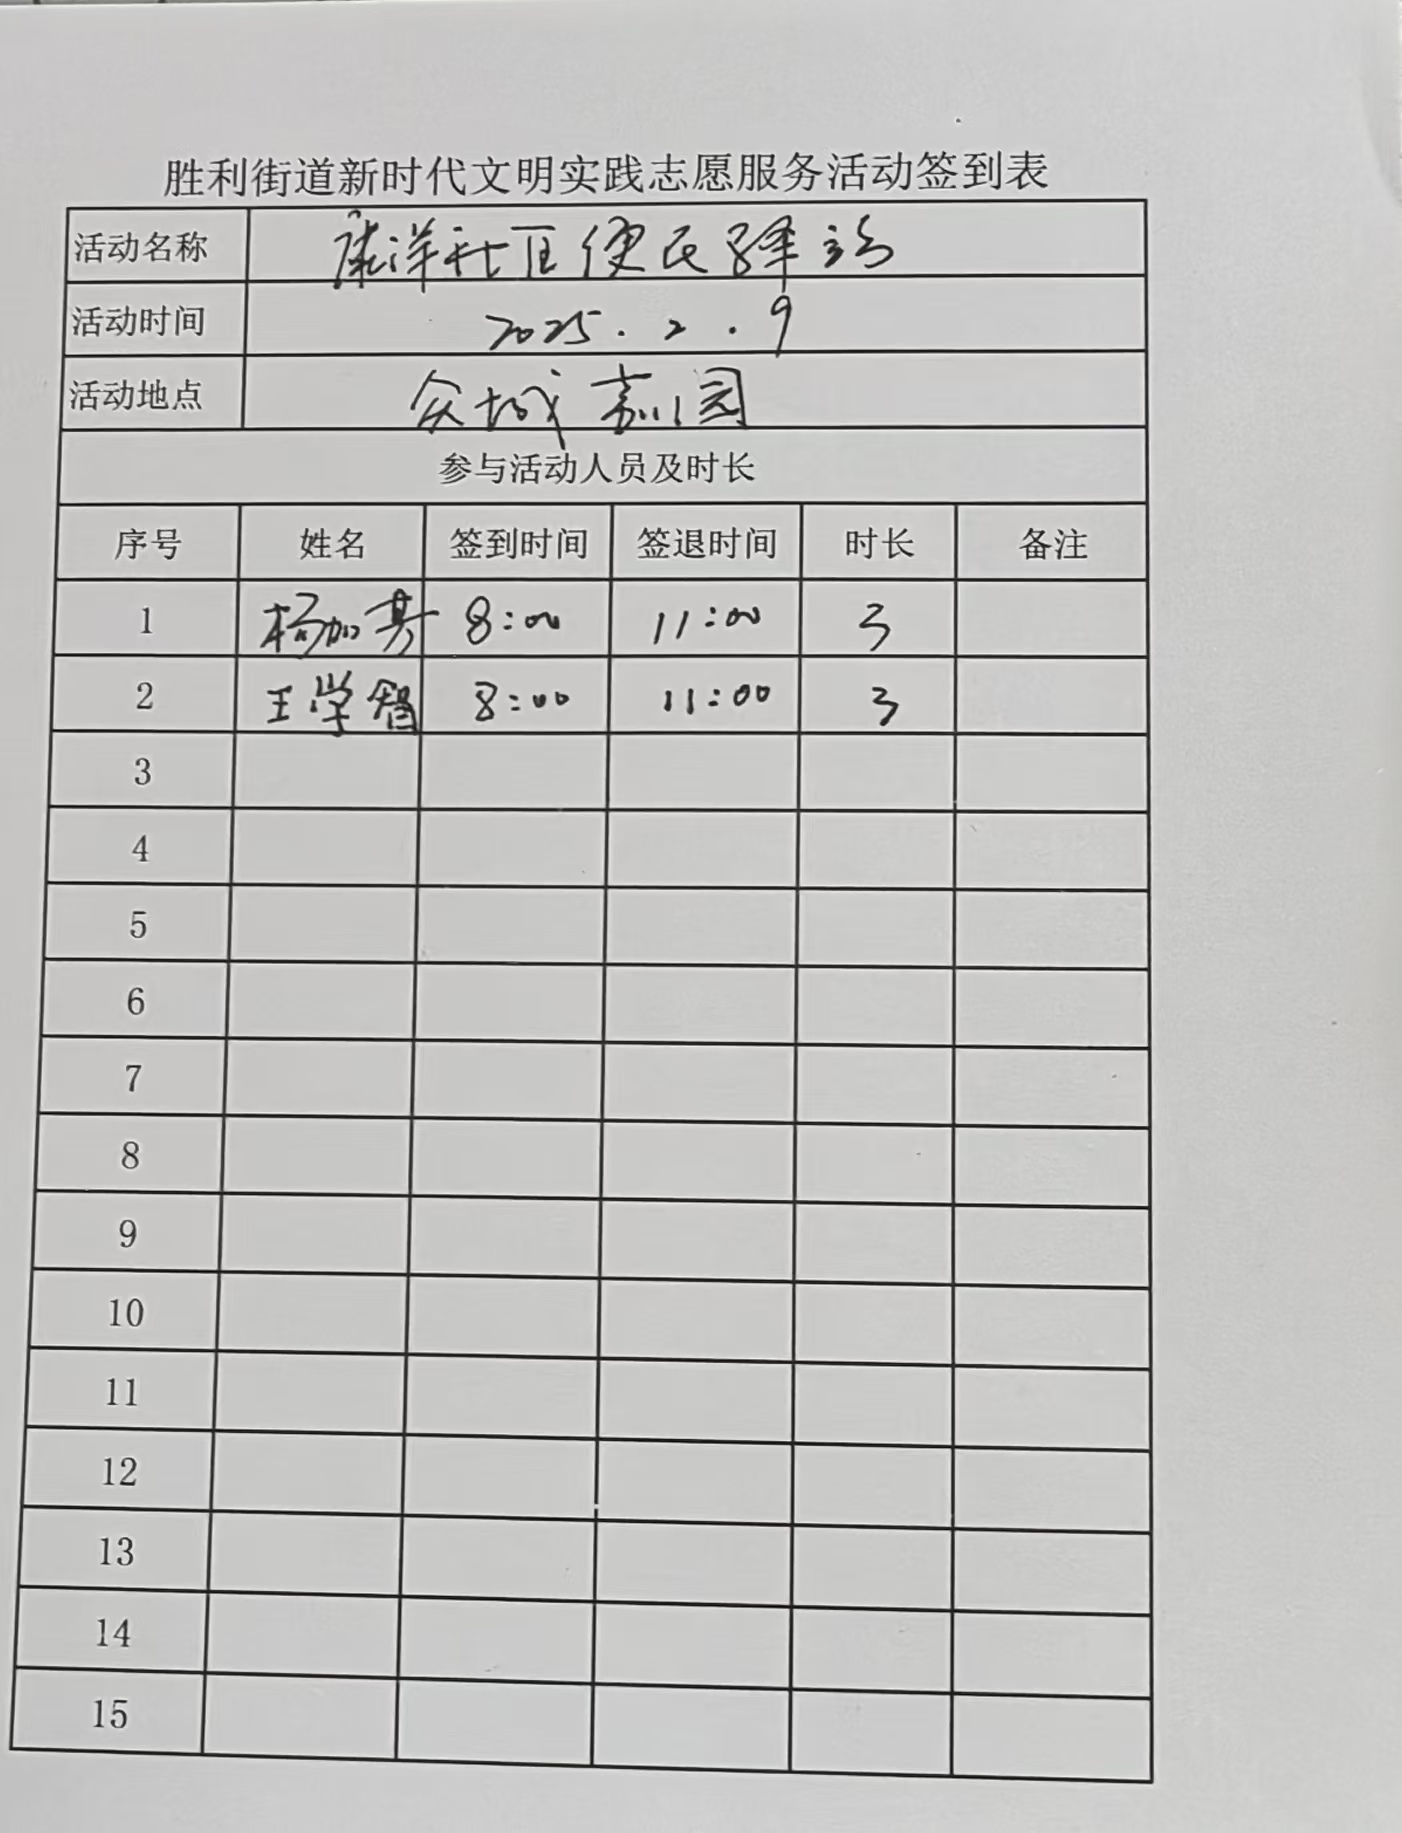 胜利街道新时代文明实践志愿服务活动签到表
活动名称 康洋社区便民驿站
活动时间 2025.2.9
活动地点 众城嘉园
参与活动人员及时长
序号 姓名 签到时间 签退时间 时长 备注
1 杨加 8:00 11:00 3
2 王学智 8:00 11:00 3
3
4
5
6
7
8
9
10
11
12
13
14
15